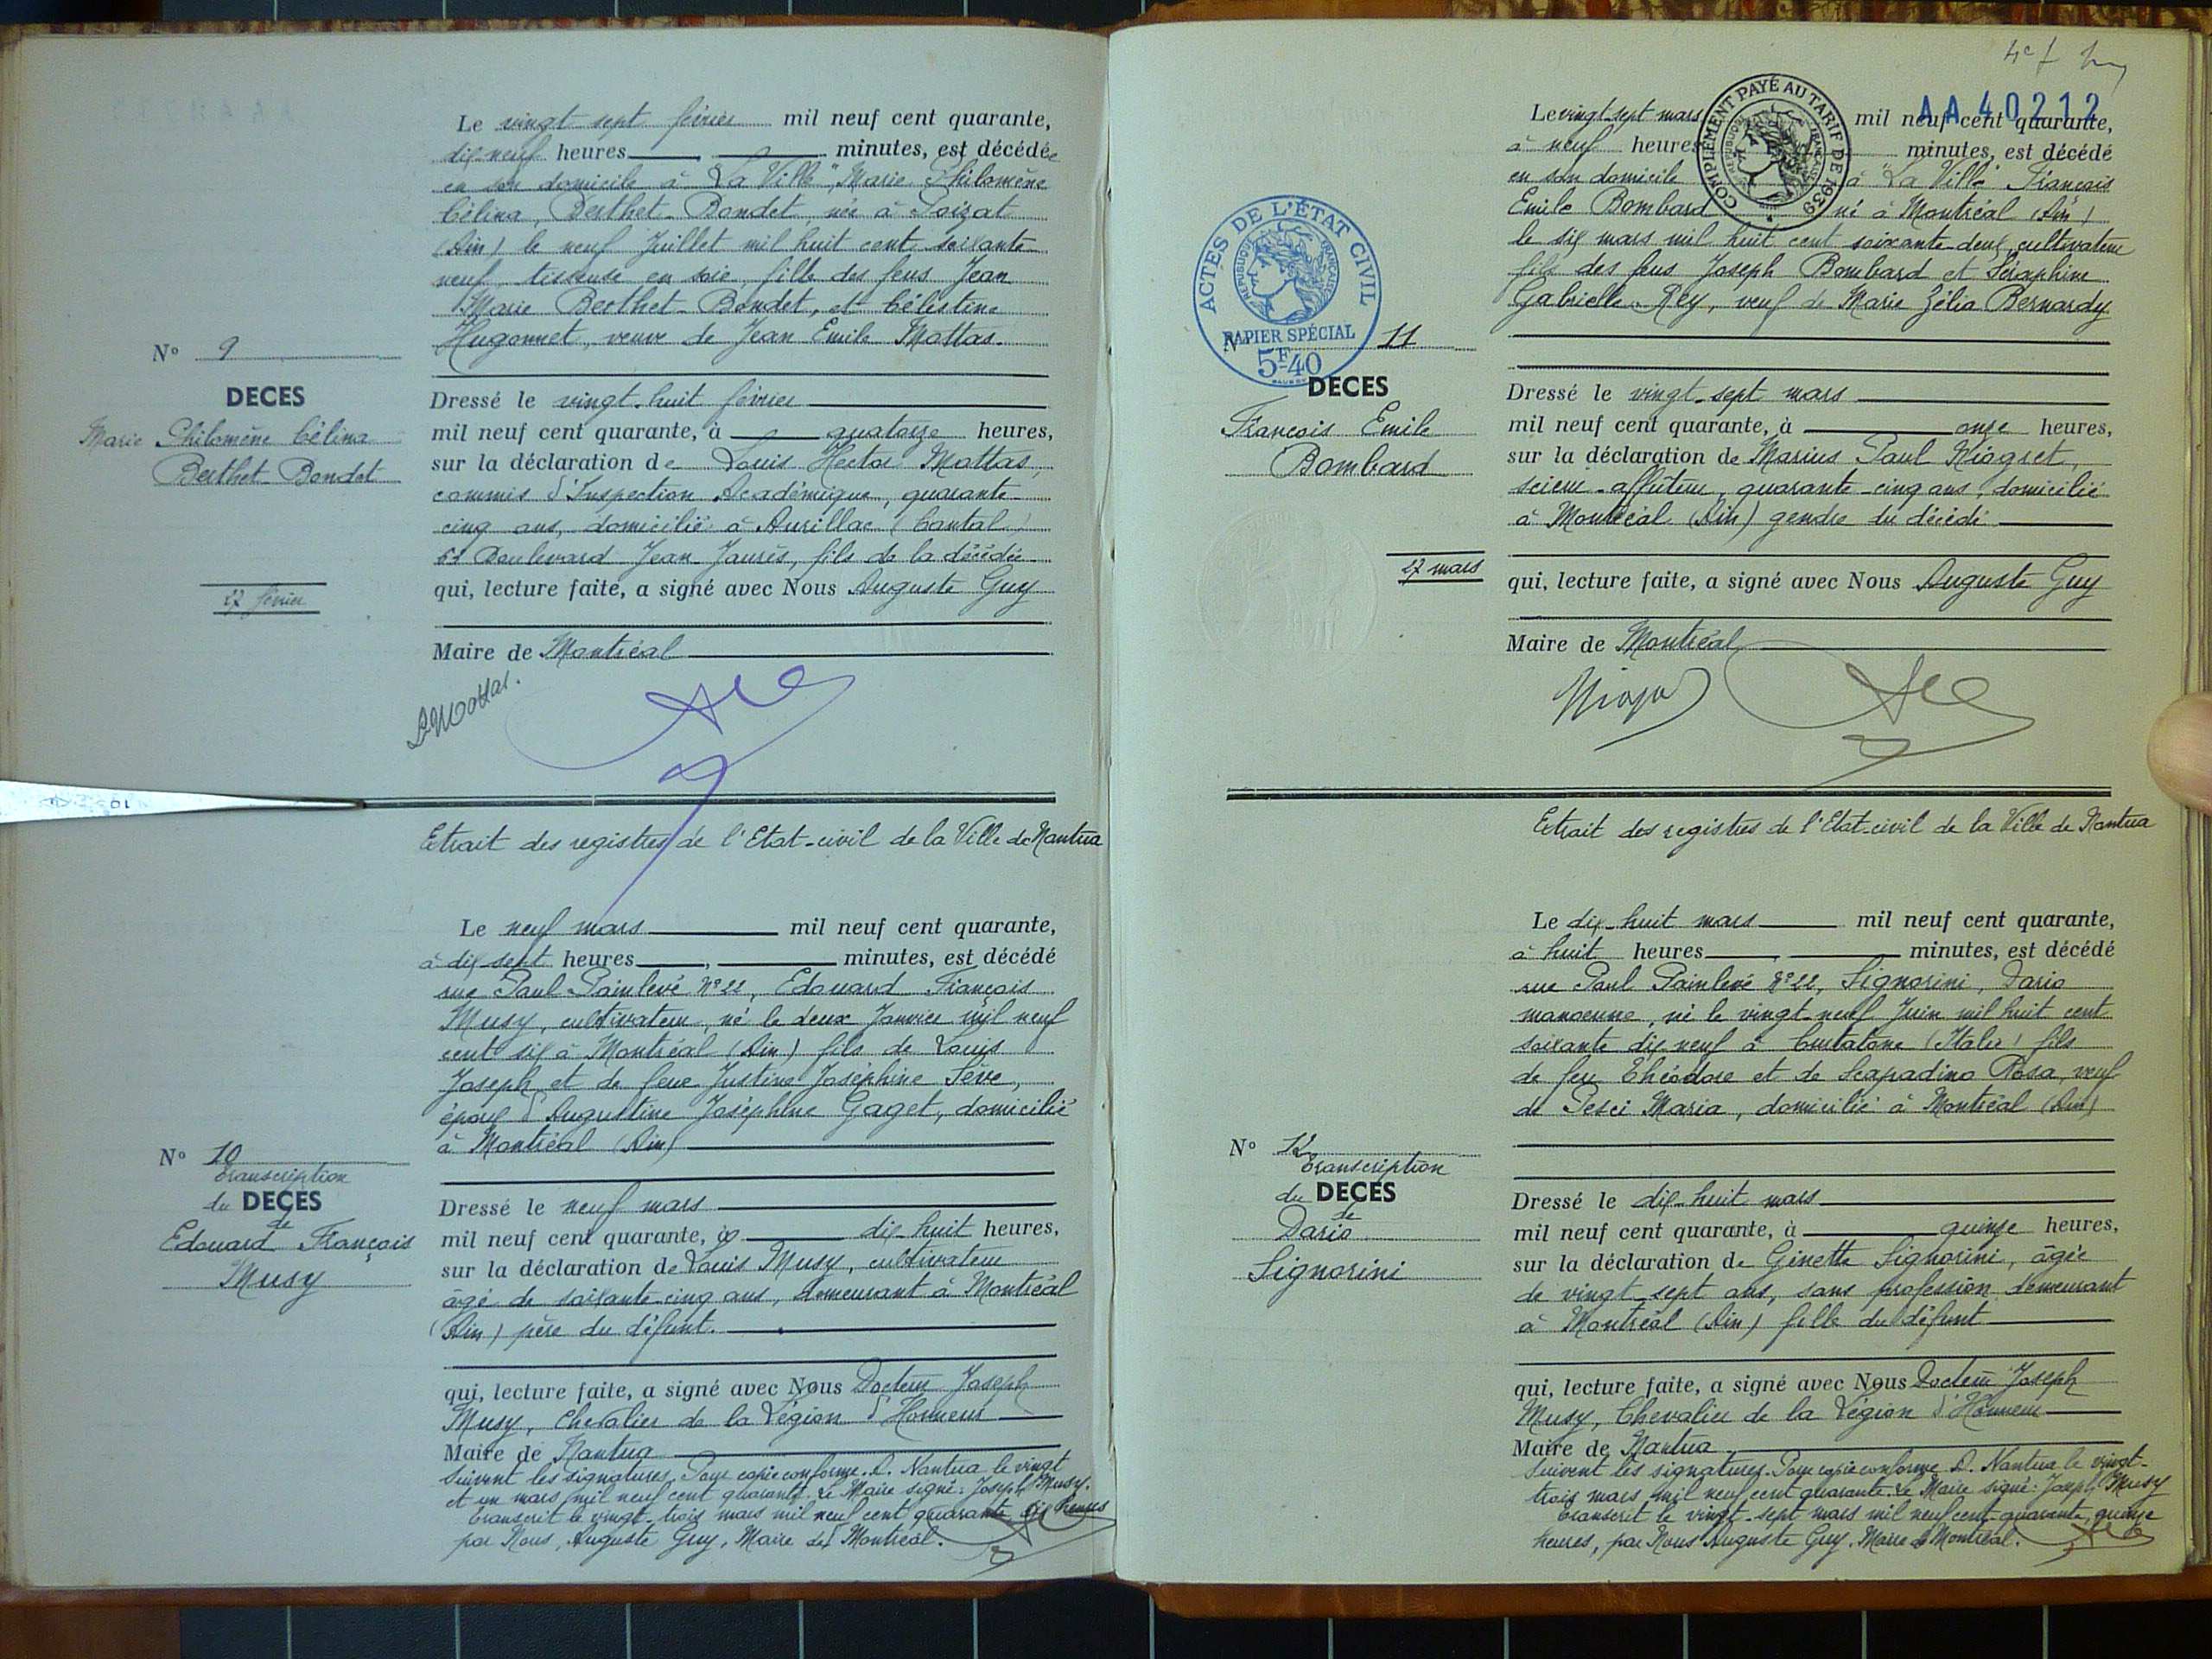 Le vingt-sept février mil neuf cent quarante,
dix-neuf heures minutes, est décédée
en son domicile à "La Ville" Marie Philomène
Célina, Berthet-Bondet, née à Poizat
(Ain) le neuf Juillet mil huit cent soixante
neuf, tisseuse en soie, fille des feus Jean
Marie Berthet-Bondet, et Célestine
Hugonnet, veuve de Jean Emile Mottas.
N° 9
DECES
Marie Philomène Célina
Berthet-Bondet
27 février
Dressé le vingt-huit février
mil neuf cent quarante, à quatorze heures,
sur la déclaration de Louis Hector Mottas,
commis d'Inspection Académique, quarante-
cinq ans, domicilié à Aurillac (Cantal)
61 Boulevard Jean Jaurès, fils de la décédée
qui, lecture faite, a signé avec Nous Auguste Guy
Maire de Montréal
LMottas.
Extrait des registres de l'Etat-civil de la Ville de Nantua
Le neuf mars mil neuf cent quarante,
à dix sept heures , minutes, est décédé
rue Paul Painlevé N° 22, Edouard François
Musy, cultivateur, né le deux Janvier mil neuf
cent six à Montréal (Ain) fils de Louis
Joseph et de feue Justine Joséphine Sève,
époux d'Augustine Joséphine Gaget, domicilié
à Montréal (Ain)
N° 10
Transcription
du DECES
de
Edouard François
Musy
Dressé le neuf mars
mil neuf cent quarante, à dix-huit heures,
sur la déclaration de Louis Musy, cultivateur
âgé de soixante-cinq ans, demeurant à Montréal
(Ain) père du défunt.
qui, lecture faite, a signé avec Nous Docteur Joseph
Musy, Chevalier de la Légion d'Honneur
Maire de Nantua
Suivent les signatures. Pour copie conforme. A. Nantua le vingt
et un mars mil neuf cent quarante. Le Maire signé: Joseph Musy.
Transcrit le vingt-trois mars mil neuf cent quarante, dix heures
par Nous, Auguste Guy, Maire de Montréal.
AA 40212
COMPLÉMENT PAYÉ AU TARIF DE 1939
REPUBLIQUE FRANÇAISE
Le vingt-sept mars mil neuf cent quarante,
à neuf heures minutes, est décédé
en son domicile à "La Ville" François
Emile Bombard né à Montréal (Ain)
le six mars mil huit cent soixante-deux, cultivateur
fils des feus Joseph Bombard et Séraphine
Gabrielle Rey, veuf de Marie Zélia Bernardy
ACTES DE L'ÉTAT CIVIL
REPUBLIQUE FRANÇAISE
PAPIER SPÉCIAL
5F40
N° 11
DECES
François Emile
Bombard
27 mars
Dressé le vingt-sept mars
mil neuf cent quarante, à onze heures,
sur la déclaration de Marius Paul Niogret,
scieur-affûteur, quarante-cinq ans, domicilié
à Montréal (Ain) gendre du décédé
qui, lecture faite, a signé avec Nous Auguste Guy
Maire de Montréal
Extrait des registres de l'Etat-civil de la Ville de Nantua
Le dix-huit mars mil neuf cent quarante,
à huit heures , minutes, est décédé
rue Paul Painlevé N° 22, Signorini, Dario
manoeuvre, né le vingt-neuf Juin mil huit cent
soixante dix-neuf à Curtatone (Italie) fils
de feu Théodore et de Scapadino Rosa, veuf
de Pesci Maria, domicilié à Montréal (Ain)
N° 12
Transcription
du DECES
de
Dario
Signorini
Dressé le dix-huit mars
mil neuf cent quarante, à quinze heures,
sur la déclaration de Ginette Signorini, âgée
de vingt-sept ans, sans profession demeurant
à Montréal (Ain) fille du défunt
qui, lecture faite, a signé avec Nous Docteur Joseph
Musy, Chevalier de la Légion d'Honneur
Maire de Nantua
Suivent les signatures. Pour copie conforme. A. Nantua le vingt-
trois mars mil neuf cent quarante. Le Maire signé: Joseph Musy
Transcrit le vingt-sept mars mil neuf cent quarante, quinze
heures, par Nous Auguste Guy. Maire de Montréal.